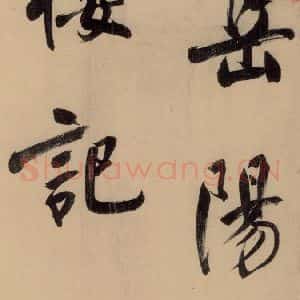 岳陽
樓記
Shufawang.CN